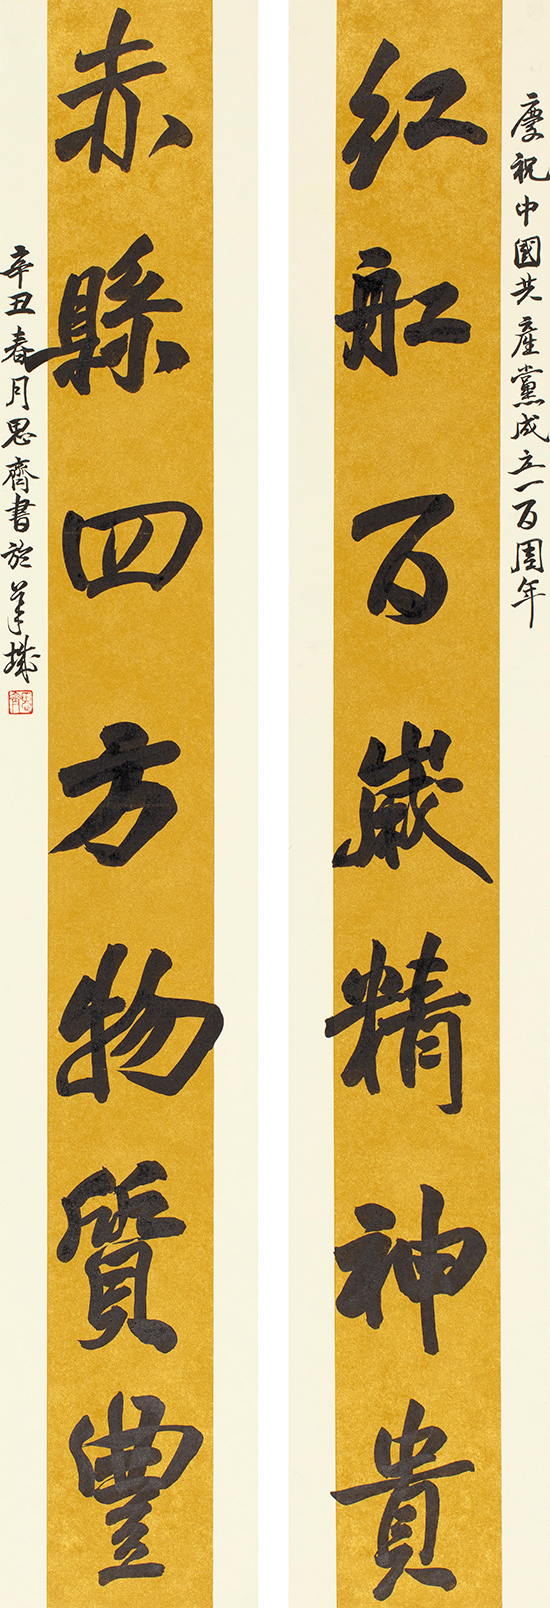 慶祝中國共產黨成立一百周年
紅舡百嵗精神貴
赤縣四方物質豐
辛丑春月思齊書於羊城